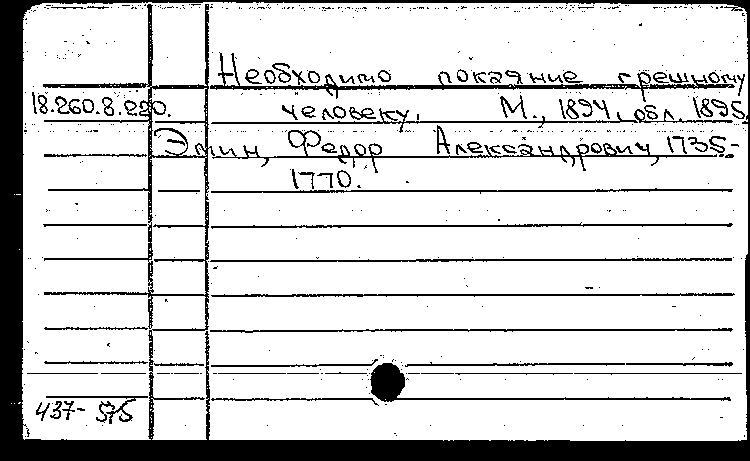 Необходимо покаяние грешному
18.260.8.220. человеку. М., 1894, обл. 1895.
Эмин, Федор Александрович, 1735-
1770.
437-575